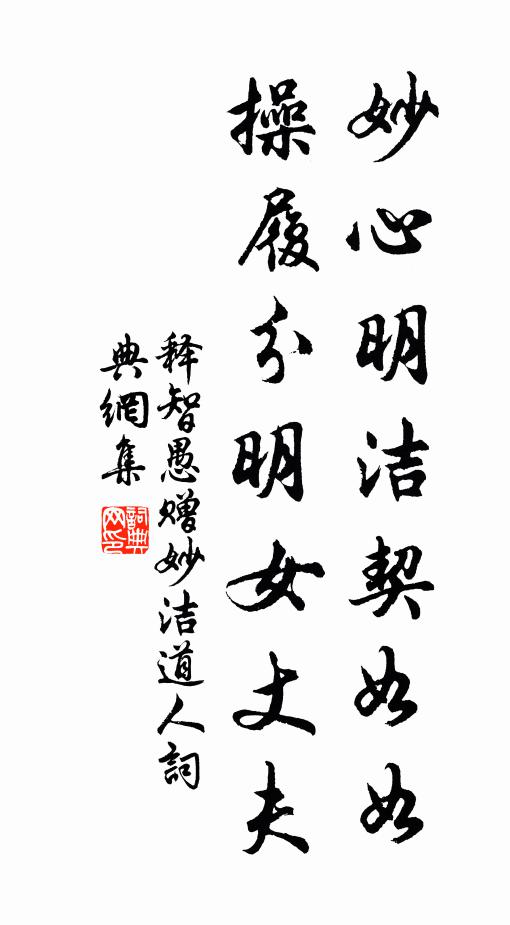 妙心明洁契如如
操履分明女丈夫
释智愚赠妙洁道人詞
典網集
詞典网印